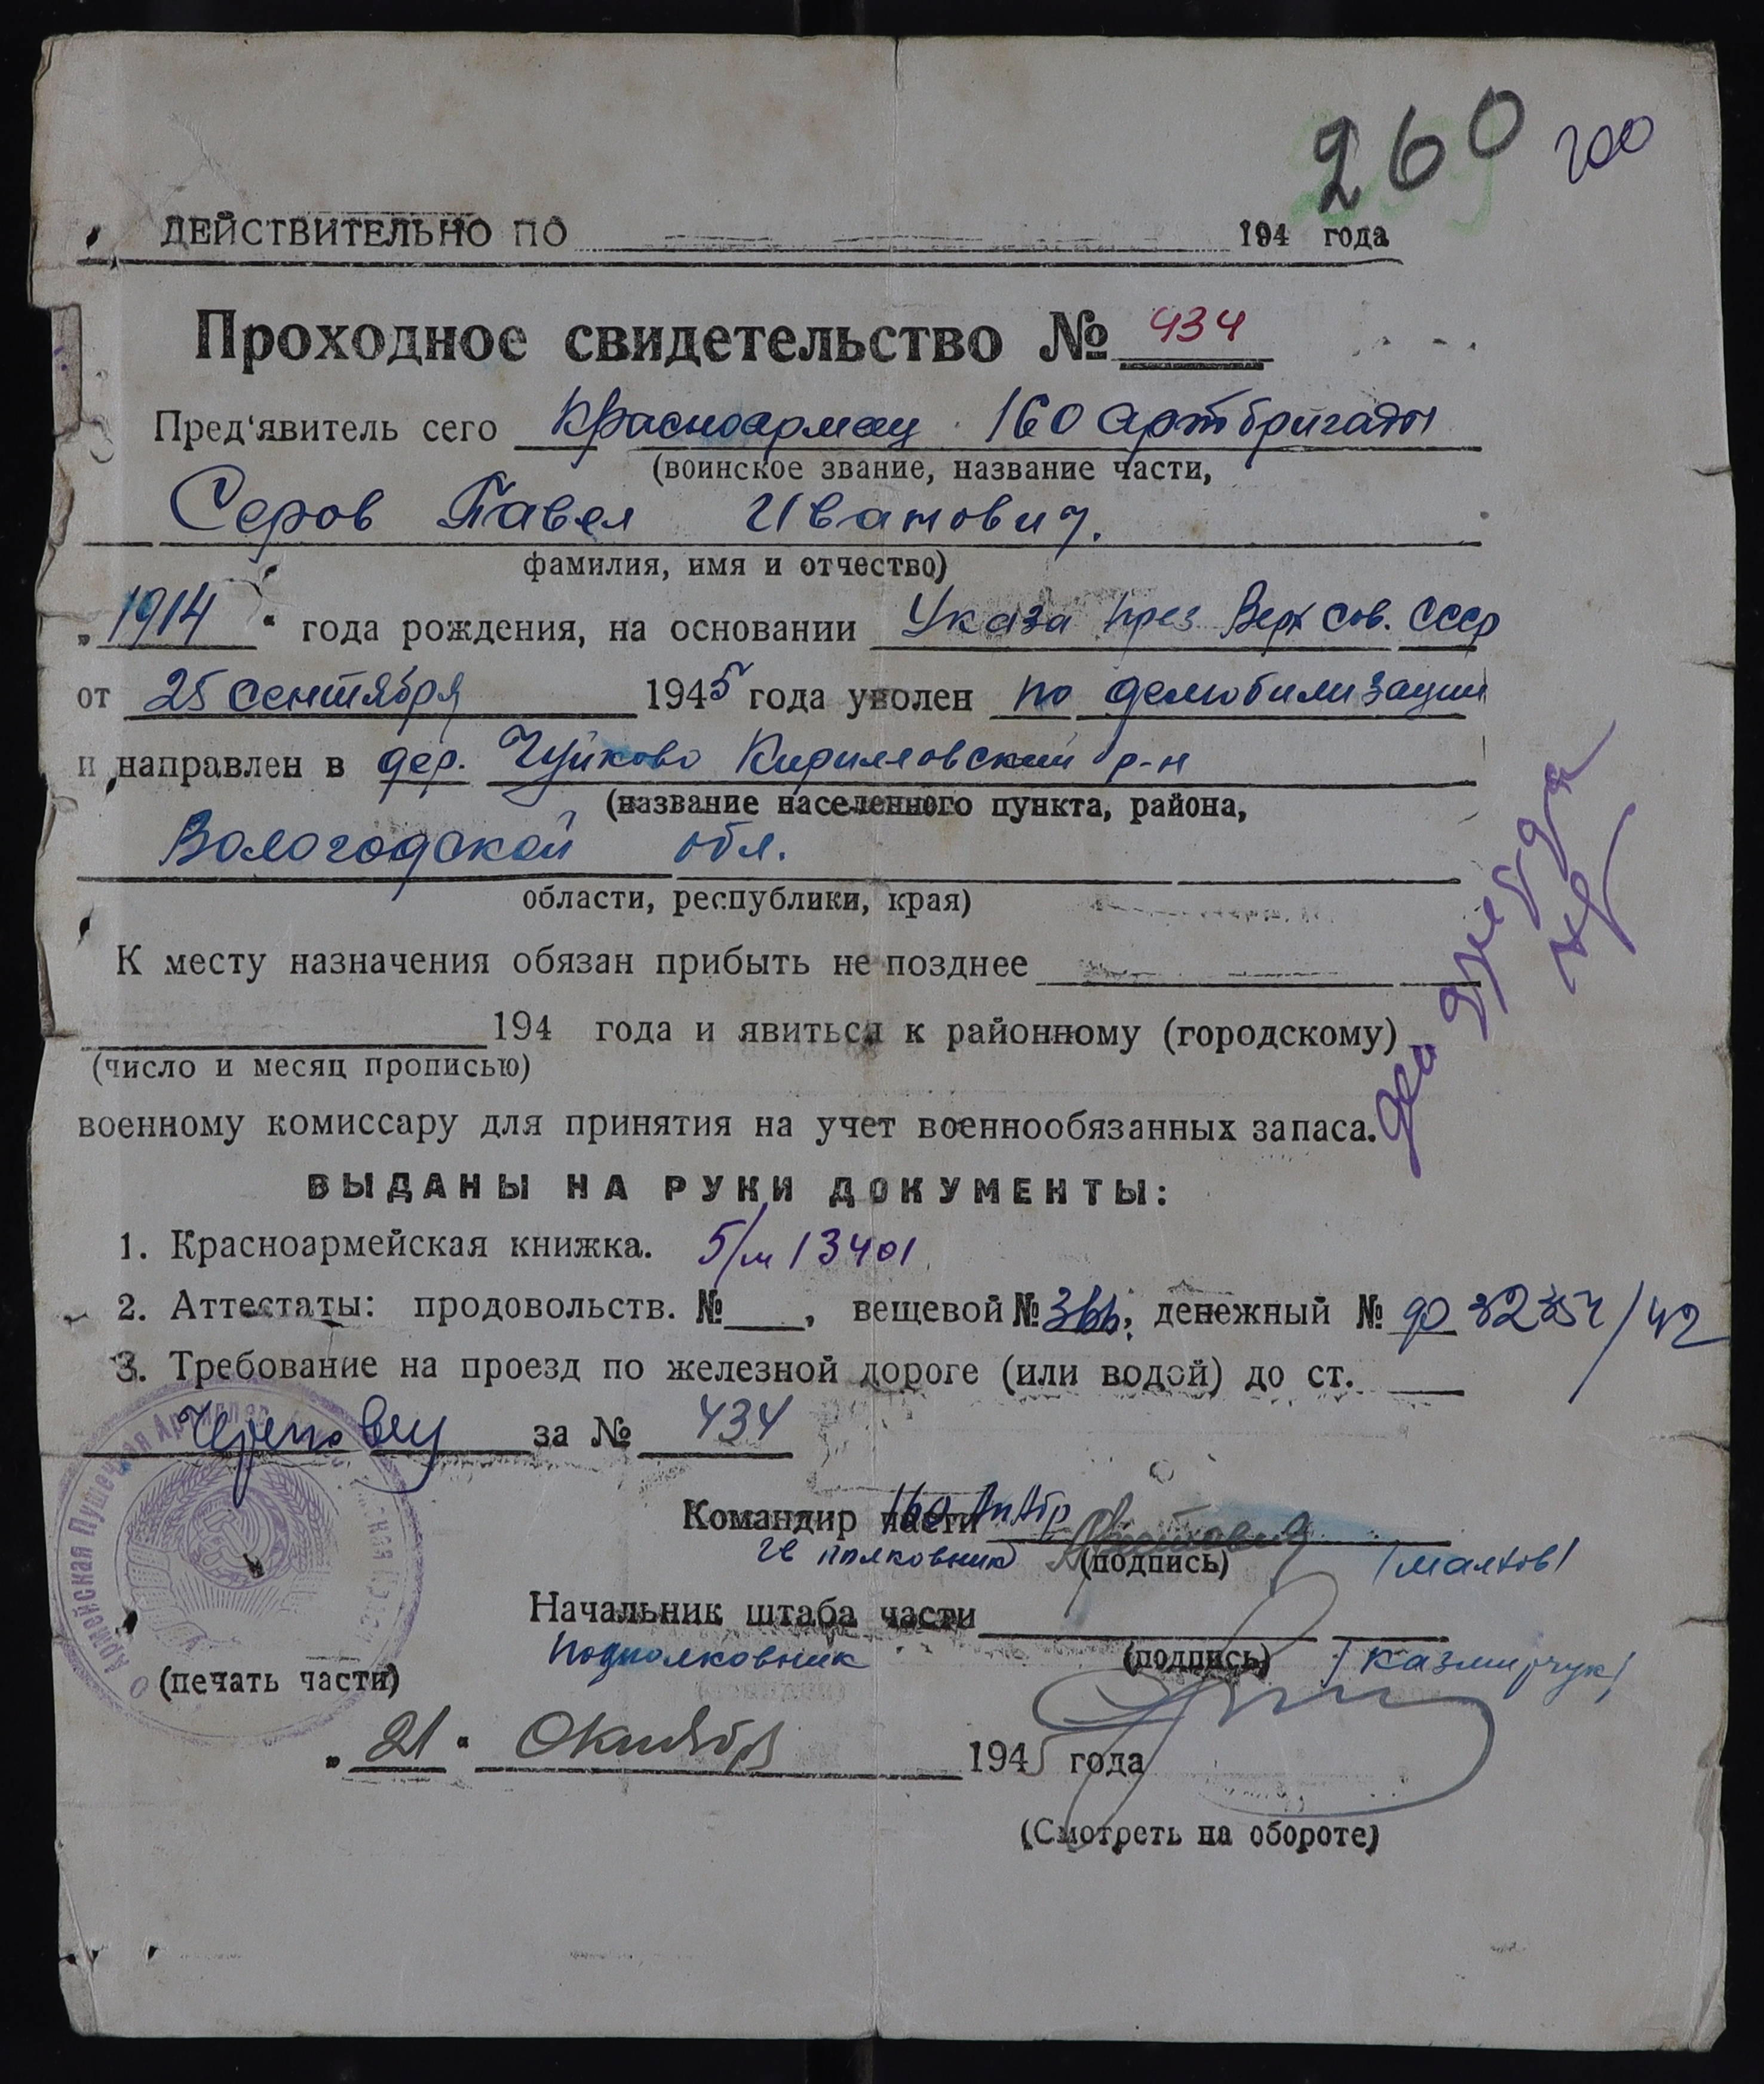 260 200
ДЕЙСТВИТЕЛЬНО ПО 194 года
Проходное свидетельство № 434
Пред'явитель сего Красноармеец 160 артбригады
(воинское звание, название части,
Серов Павел Иванович.
фамилия, имя и отчество)
„1914" года рождения, на основании Указа през Верх Сов. СССР
от 25 сентября 1945 года уволен по демобилизации
и направлен в дер. Чуйково Кирилловский р-н
(название населенного пункта, района,
Вологодской обл.
области, республики, края)
К месту назначения обязан прибыть не позднее
194 года и явиться к районному (городскому)
(число и месяц прописью)
военному комиссару для принятия на учет военнообязанных запаса.
ВЫДАНЫ НА РУКИ ДОКУМЕНТЫ:
1. Красноармейская книжка. б/м 13401
2. Аттестаты: продовольств. № , вещевой № , денежный №
3. Требование на проезд по железной дороге (или водой) до ст.
Череповец за № 434
Командир части 160 АпАбр
Гв полковник (подпись)
Начальник штаба части
подполковник (подпись) /Казмирчук/
Армейская Пушечная
(печать части)
„21" Октября 1945 года
(Смотреть на обороте)